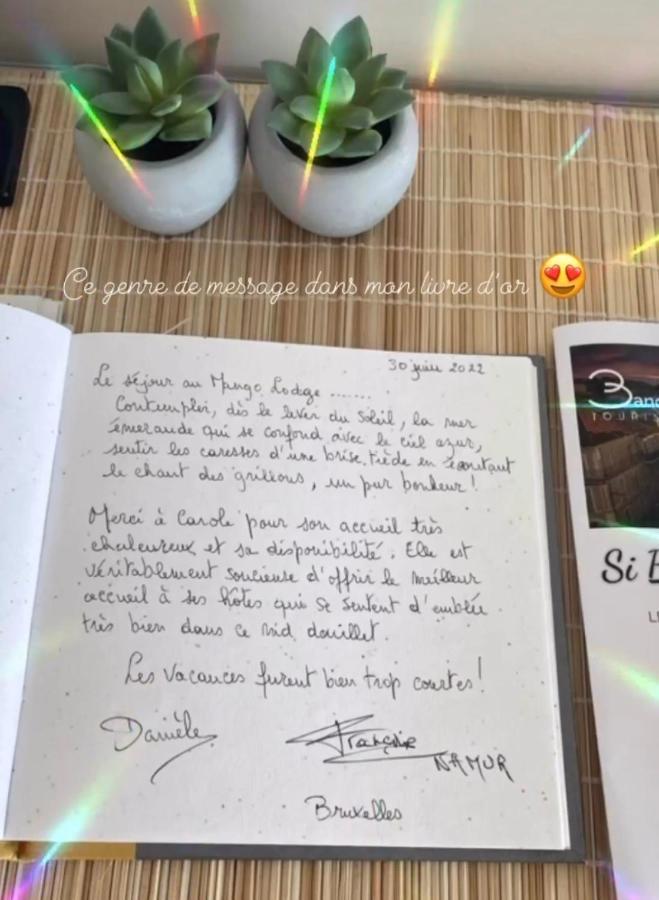 Ce genre de message dans mon livre d'or 😍
30 juin 2022
Le séjour au Mango Lodge .......
Contempler, dès le lever du soleil, la mer
émeraude qui se confond avec le ciel azur,
sentir les caresses d'une brise tiède en écoutant
le chant des grillons, un pur bonheur !
Merci à Carole pour son accueil très
chaleureux et sa disponibilité. Elle est
véritablement soucieuse d'offrir le meilleur
accueil à ses hôtes qui se sentent d'emblée
très bien dans ce nid douillet.
Les vacances furent bien trop courtes !
Danièle
Françoise
NAMUR
Bruxelles
Si